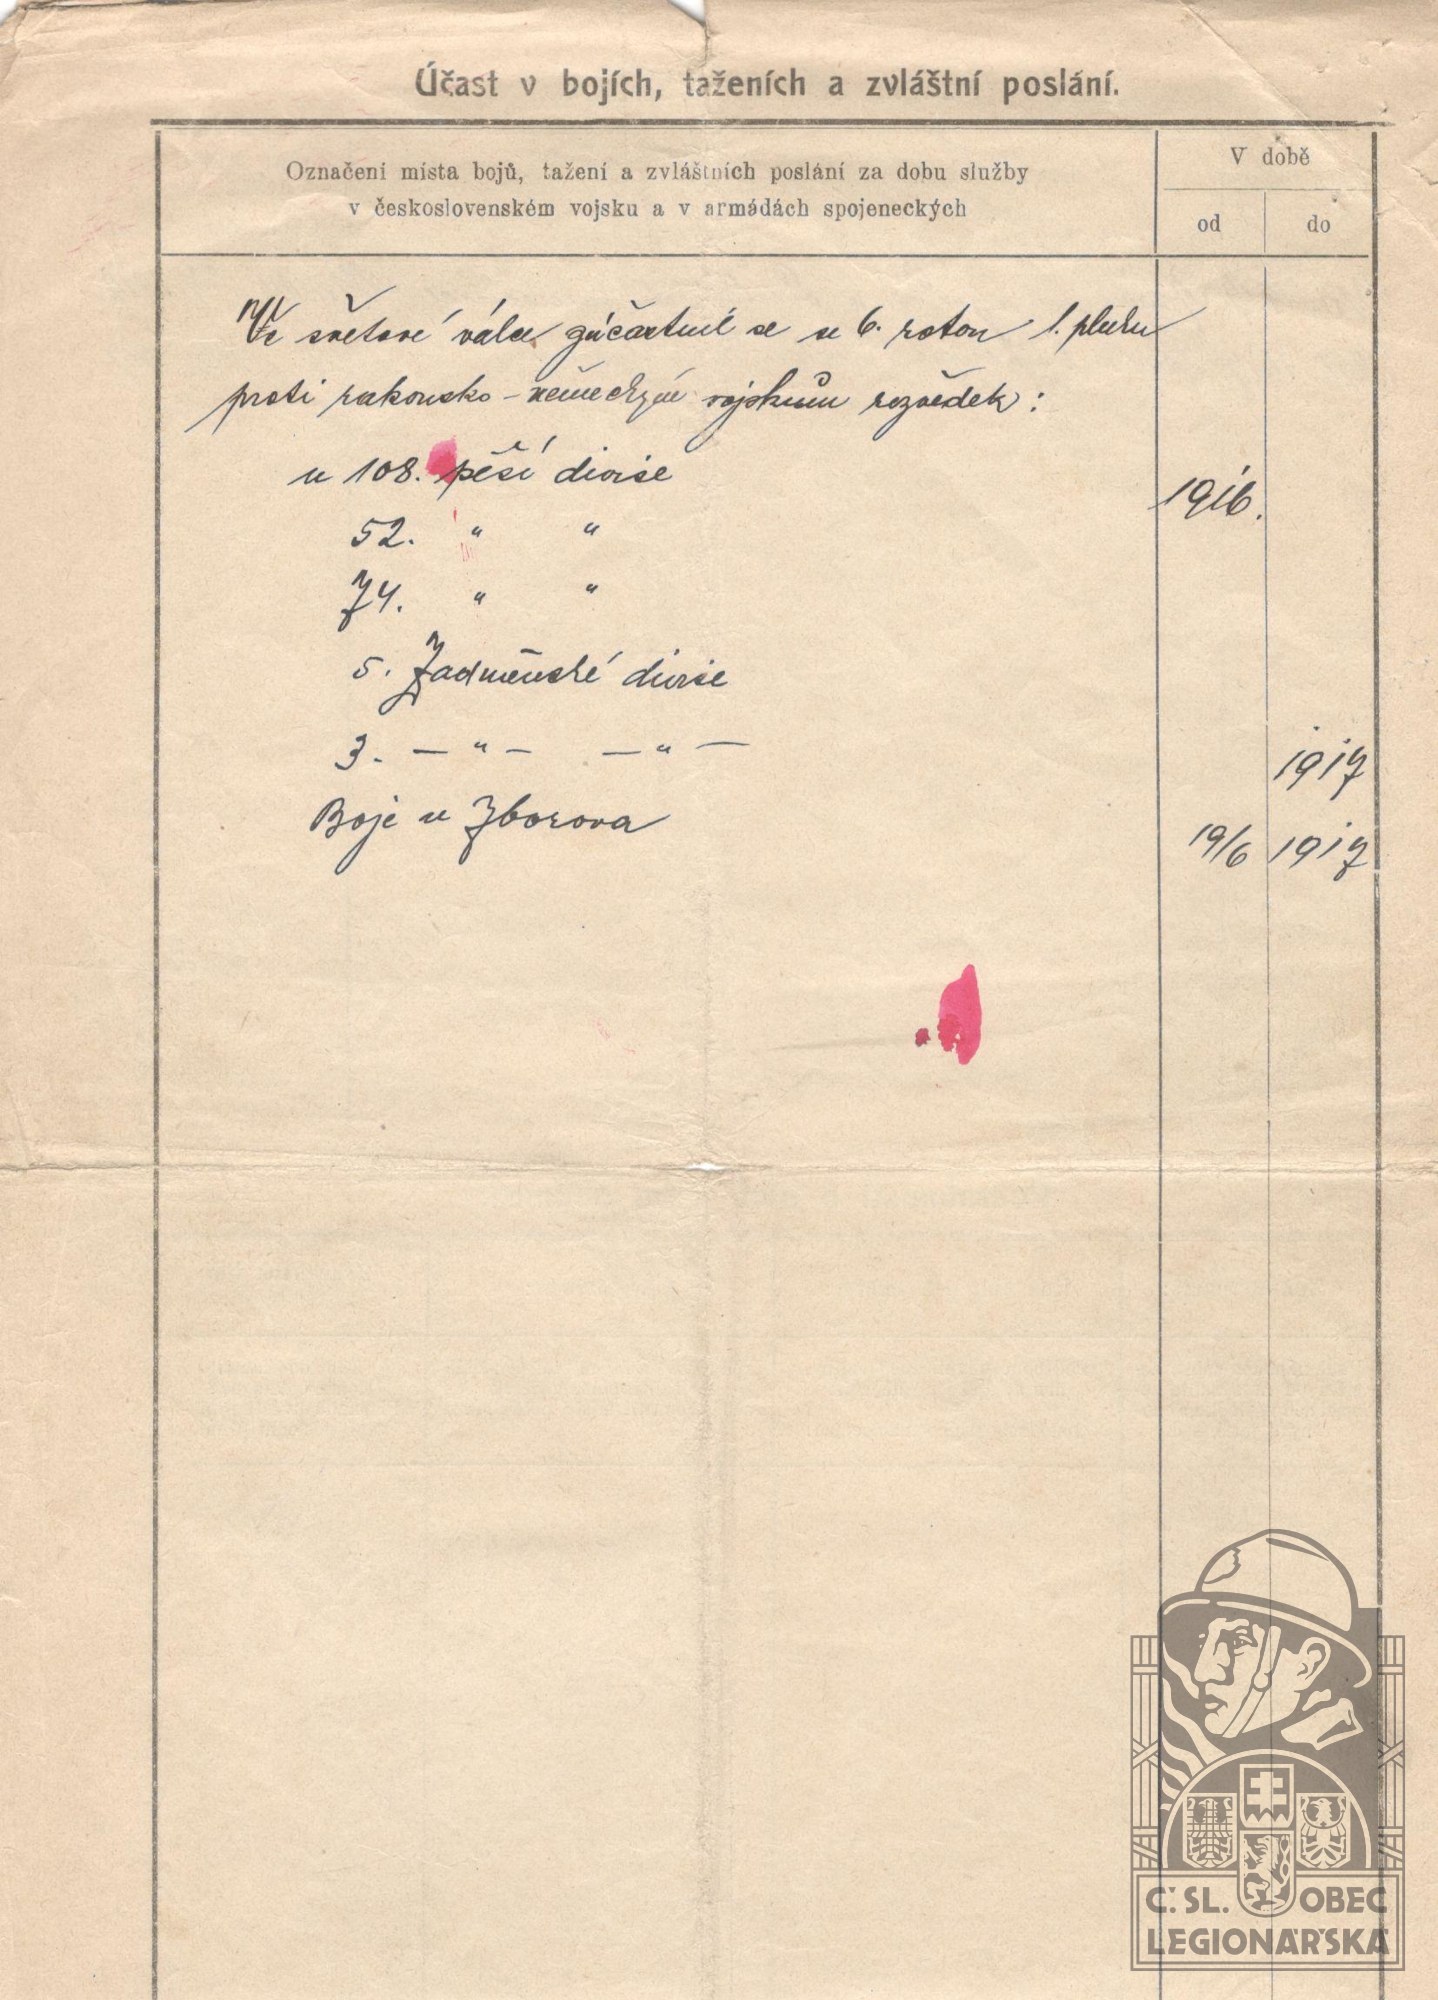 Účast v bojích, taženích a zvláštní poslání.
Označení místa bojů, tažení a zvláštních poslání za dobu služby
v československém vojsku a v armádách spojeneckých
V době
od
do
Ve světové válce zúčastnil se u 6. rotou 1. pluku
proti rakousko-německým vojskům rozvědek:
u 108. pěší divise
1916.
52. " "
74. " "
5. Zadměnské divise
3. — " — — " —
1917
Boje u Zborova
19/6 1917
Č. SL. OBEC
LEGIONÁŘSKÁ